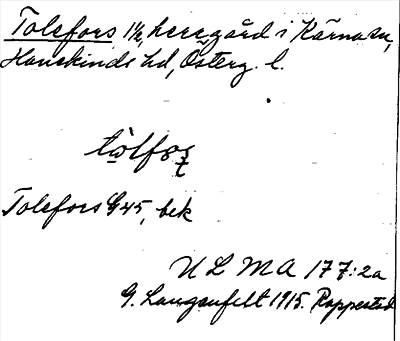 Tolefors 1 1/2, herregård i Kärna sn,
Hanekinds hd, Österg. l.
Tolefors G45, bek
ULMA 177:2a
G. Langenfelt 1915. Rappestad